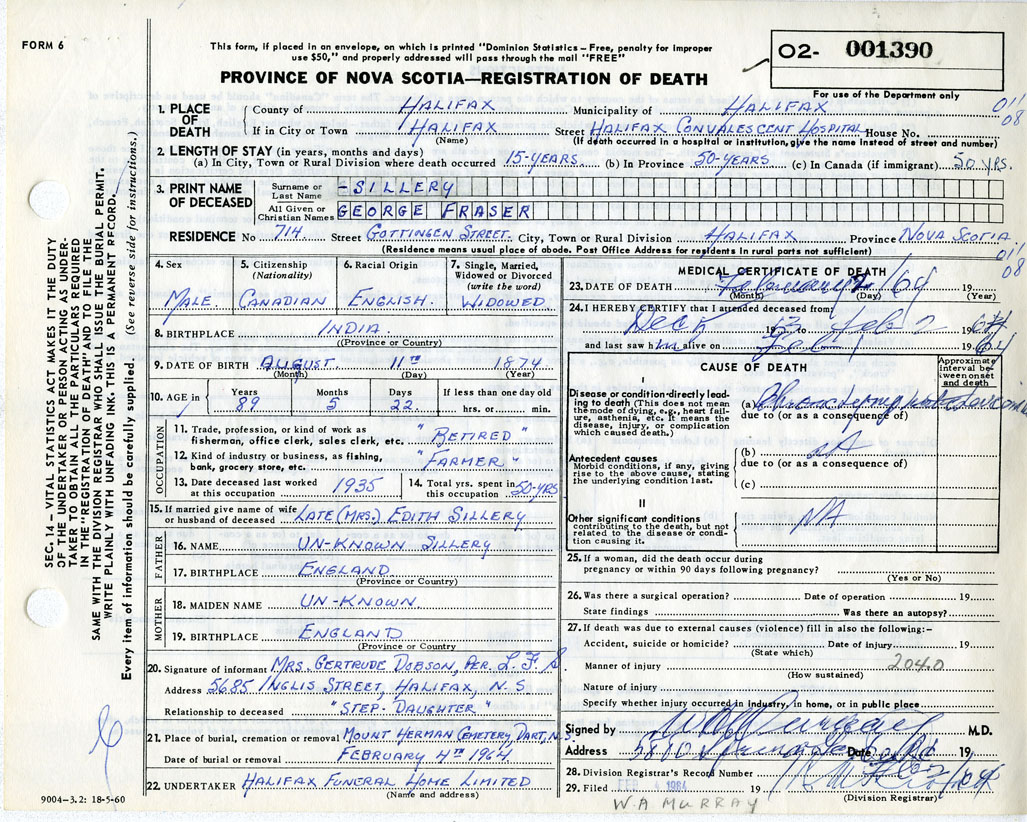 FORM 6
This form, if placed in an envelope, on which is printed "Dominion Statistics – Free, penalty for improper
use $50," and properly addressed will pass through the mail "FREE"
PROVINCE OF NOVA SCOTIA—REGISTRATION OF DEATH
02- 001390
For use of the Department only
SEC. 14 – VITAL STATISTICS ACT MAKES IT THE DUTY
OF THE UNDERTAKER OR PERSON ACTING AS UNDER-
TAKER TO OBTAIN ALL THE PARTICULARS REQUIRED
IN THE "REGISTRATION OF DEATH" AND TO FILE THE
SAME WITH THE DIVISION REGISTRAR WHO SHALL ISSUE THE BURIAL PERMIT.
WRITE PLAINLY WITH UNFADING INK. THIS IS A PERMANENT RECORD.
Every item of information should be carefully supplied. (See reverse side for instructions.)
1. PLACE OF DEATH
County of HALIFAX Municipality of HALIFAX
011
08
If in City or Town HALIFAX Street HALIFAX CONVALESCENT HOSPITAL House No.
(Name) (If death occurred in a hospital or institution, give the name instead of street and number)
2. LENGTH OF STAY (in years, months and days)
(a) In City, Town or Rural Division where death occurred 15-YEARS (b) In Province 50-YEARS (c) In Canada (if immigrant) 50 YRS.
3. PRINT NAME OF DECEASED
Surname or Last Name -SILLERY
All Given or Christian Names GEORGE FRASER
RESIDENCE No 714 Street GOTTINGEN STREET. City, Town or Rural Division HALIFAX Province NOVA SCOTIA
(Residence means usual place of abode. Post Office Address for residents in rural parts not sufficient)
011
08
4. Sex MALE
5. Citizenship (Nationality) CANADIAN
6. Racial Origin ENGLISH.
7. Single, Married, Widowed or Divorced (write the word) WIDOWED
8. BIRTHPLACE INDIA
(Province or Country)
9. DATE OF BIRTH AUGUST 11TH 1874
(Month) (Day) (Year)
10. AGE in Years Months Days If less than one day old
89 5 22 hrs. or min.
OCCUPATION
11. Trade, profession, or kind of work as
fisherman, office clerk, sales clerk, etc. "RETIRED"
12. Kind of industry or business, as fishing,
bank, grocery store, etc. "FARMER"
13. Date deceased last worked at this occupation 1935
14. Total yrs. spent in this occupation 50-YRS
15. If married give name of wife
or husband of deceased LATE (MRS.) EDITH SILLERY
FATHER
16. NAME UN-KNOWN SILLERY
17. BIRTHPLACE ENGLAND
(Province or Country)
MOTHER
18. MAIDEN NAME UN-KNOWN
19. BIRTHPLACE ENGLAND
(Province or Country)
20. Signature of informant MRS. GERTRUDE DOBSON, PER. L. F. S.
Address 5685 INGLIS STREET, HALIFAX, N. S
Relationship to deceased "STEP-DAUGHTER"
21. Place of burial, cremation or removal MOUNT HERMAN CEMETERY, DART, N.S.
Date of burial or removal FEBRUARY 4TH 1964.
22. UNDERTAKER HALIFAX FUNERAL HOME LIMITED
(Name and address)
9004-3.2: 18-5-60
MEDICAL CERTIFICATE OF DEATH
23. DATE OF DEATH February 2/64 19
(Month) (Day) (Year)
24. I HEREBY CERTIFY that I attended deceased from
19 Feb 2 19 64
and last saw him alive on 19 64
CAUSE OF DEATH
Approximate interval between onset and death
I
Disease or condition directly lead-
ing to death (This does not mean
the mode of dying, e.g., heart fail-
ure, asthenia, etc. It means the
disease, injury, or complication
which caused death.)
(a) Chronic
due to (or as a consequence of)
Antecedent causes
Morbid conditions, if any, giving
rise to the above cause, stating
the underlying condition last.
(b)
due to (or as a consequence of)
(c)
II
Other significant conditions
contributing to the death, but not
related to the disease or condi-
tion causing it.
NA
25. If a woman, did the death occur during
pregnancy or within 90 days following pregnancy?
(Yes or No)
26. Was there a surgical operation? Date of operation 19
State findings Was there an autopsy?
27. If death was due to external causes (violence) fill in also the following:–
Accident, suicide or homicide? Date of injury 19
(State which)
2040
Manner of injury
(How sustained)
Nature of injury
Specify whether injury occurred in industry, in home, or in public place
Signed by M.D.
Address Date 19
28. Division Registrar's Record Number
29. Filed 19
(Division Registrar)
W. A MURRAY